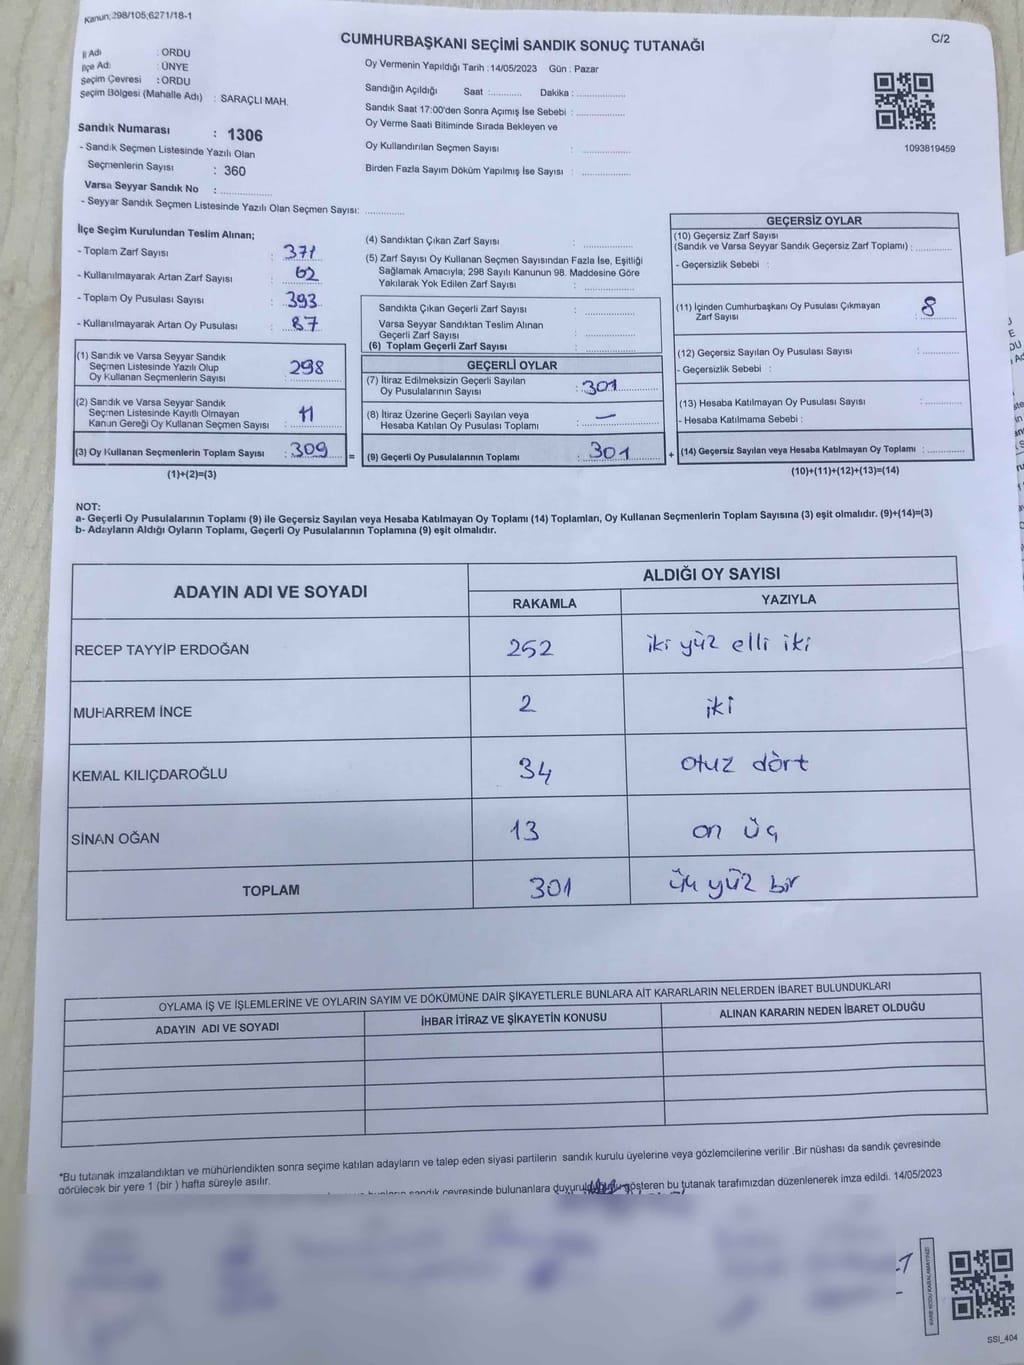 Kanun; 298/105;6271/18-1
C/2
CUMHURBAŞKANI SEÇİMİ SANDIK SONUÇ TUTANAĞI
İl Adı : ORDU
İlçe Adı : ÜNYE
Seçim Çevresi : ORDU
Seçim Bölgesi (Mahalle Adı) : SARAÇLI MAH.
Oy Vermenin Yapıldığı Tarih : 14/05/2023 Gün : Pazar
Sandığın Açıldığı Saat :........... Dakika : ....................
Sandık Saat 17:00'den Sonra Açımış İse Sebebi : ....................
Oy Verme Saati Bitiminde Sırada Bekleyen ve
Oy Kullandırılan Seçmen Sayısı : ....................
Birden Fazla Sayım Döküm Yapılmış İse Sayısı : ....................
1093819459
Sandık Numarası : 1306
- Sandık Seçmen Listesinde Yazılı Olan
Seçmenlerin Sayısı : 360
Varsa Seyyar Sandık No : ....................
- Seyyar Sandık Seçmen Listesinde Yazılı Olan Seçmen Sayısı: ...............
İlçe Seçim Kurulundan Teslim Alınan;
- Toplam Zarf Sayısı : 371
- Kullanılmayarak Artan Zarf Sayısı : 62
- Toplam Oy Pusulası Sayısı : 393
- Kullanılmayarak Artan Oy Pusulası : 87
(1) Sandık ve Varsa Seyyar Sandık
Seçmen Listesinde Yazılı Olup
Oy Kullanan Seçmenlerin Sayısı : 298
(2) Sandık ve Varsa Seyyar Sandık
Seçmen Listesinde Kayıtlı Olmayan
Kanun Gereği Oy Kullanan Seçmen Sayısı : 11
(3) Oy Kullanan Seçmenlerin Toplam Sayısı : 309 =
(1)+(2)=(3)
(4) Sandıktan Çıkan Zarf Sayısı : ....................
(5) Zarf Sayısı Oy Kullanan Seçmen Sayısından Fazla İse, Eşitliği
Sağlamak Amacıyla; 298 Sayılı Kanunun 98. Maddesine Göre
Yakılarak Yok Edilen Zarf Sayısı : ....................
Sandıkta Çıkan Geçerli Zarf Sayısı : ....................
Varsa Seyyar Sandıktan Teslim Alınan
Geçerli Zarf Sayısı : ....................
(6) Toplam Geçerli Zarf Sayısı : ....................
GEÇERLİ OYLAR
(7) İtiraz Edilmeksizin Geçerli Sayılan
Oy Pusulalarının Sayısı : 301
(8) İtiraz Üzerine Geçerli Sayılan veya
Hesaba Katılan Oy Pusulası Toplamı : —
(9) Geçerli Oy Pusulalarının Toplamı : 301 +
GEÇERSİZ OYLAR
(10) Geçersiz Zarf Sayısı
(Sandık ve Varsa Seyyar Sandık Geçersiz Zarf Toplamı) : ...............
- Geçersizlik Sebebi :
(11) İçinden Cumhurbaşkanı Oy Pusulası Çıkmayan
Zarf Sayısı : 8
(12) Geçersiz Sayılan Oy Pusulası Sayısı : ...............
- Geçersizlik Sebebi :
(13) Hesaba Katılmayan Oy Pusulası Sayısı : ...............
- Hesaba Katılmama Sebebi :
(14) Geçersiz Sayılan veya Hesaba Katılmayan Oy Toplamı : ...............
(10)+(11)+(12)+(13)=(14)
NOT:
a- Geçerli Oy Pusulalarının Toplamı (9) ile Geçersiz Sayılan veya Hesaba Katılmayan Oy Toplamı (14) Toplamları, Oy Kullanan Seçmenlerin Toplam Sayısına (3) eşit olmalıdır. (9)+(14)=(3)
b- Adayların Aldığı Oyların Toplamı, Geçerli Oy Pusulalarının Toplamına (9) eşit olmalıdır.
ADAYIN ADI VE SOYADI
ALDIĞI OY SAYISI
RAKAMLA YAZIYLA
RECEP TAYYİP ERDOĞAN 252 iki yüz elli iki
MUHARREM İNCE 2 iki
KEMAL KILIÇDAROĞLU 34 otuz dört
SİNAN OĞAN 13 on üç
TOPLAM 301 üç yüz bir
OYLAMA İŞ VE İŞLEMLERİNE VE OYLARIN SAYIM VE DÖKÜMÜNE DAİR ŞİKAYETLERLE BUNLARA AİT KARARLARIN NELERDEN İBARET BULUNDUKLARI
ADAYIN ADI VE SOYADI İHBAR İTİRAZ VE ŞİKAYETİN KONUSU ALINAN KARARIN NEDEN İBARET OLDUĞU
*Bu tutanak imzalandıktan ve mühürlendikten sonra seçime katılan adayların ve talep eden siyasi partilerin sandık kurulu üyelerine veya gözlemcilerine verilir .Bir nüshası da sandık çevresinde
görülecek bir yere 1 (bir ) hafta süreyle asılır.
sandık çevresinde bulunanlara gösteren bu tutanak tarafımızdan düzenlenerek imza edildi. 14/05/2023
KARE KODU KARALAMAYINIZ!
SSI_404